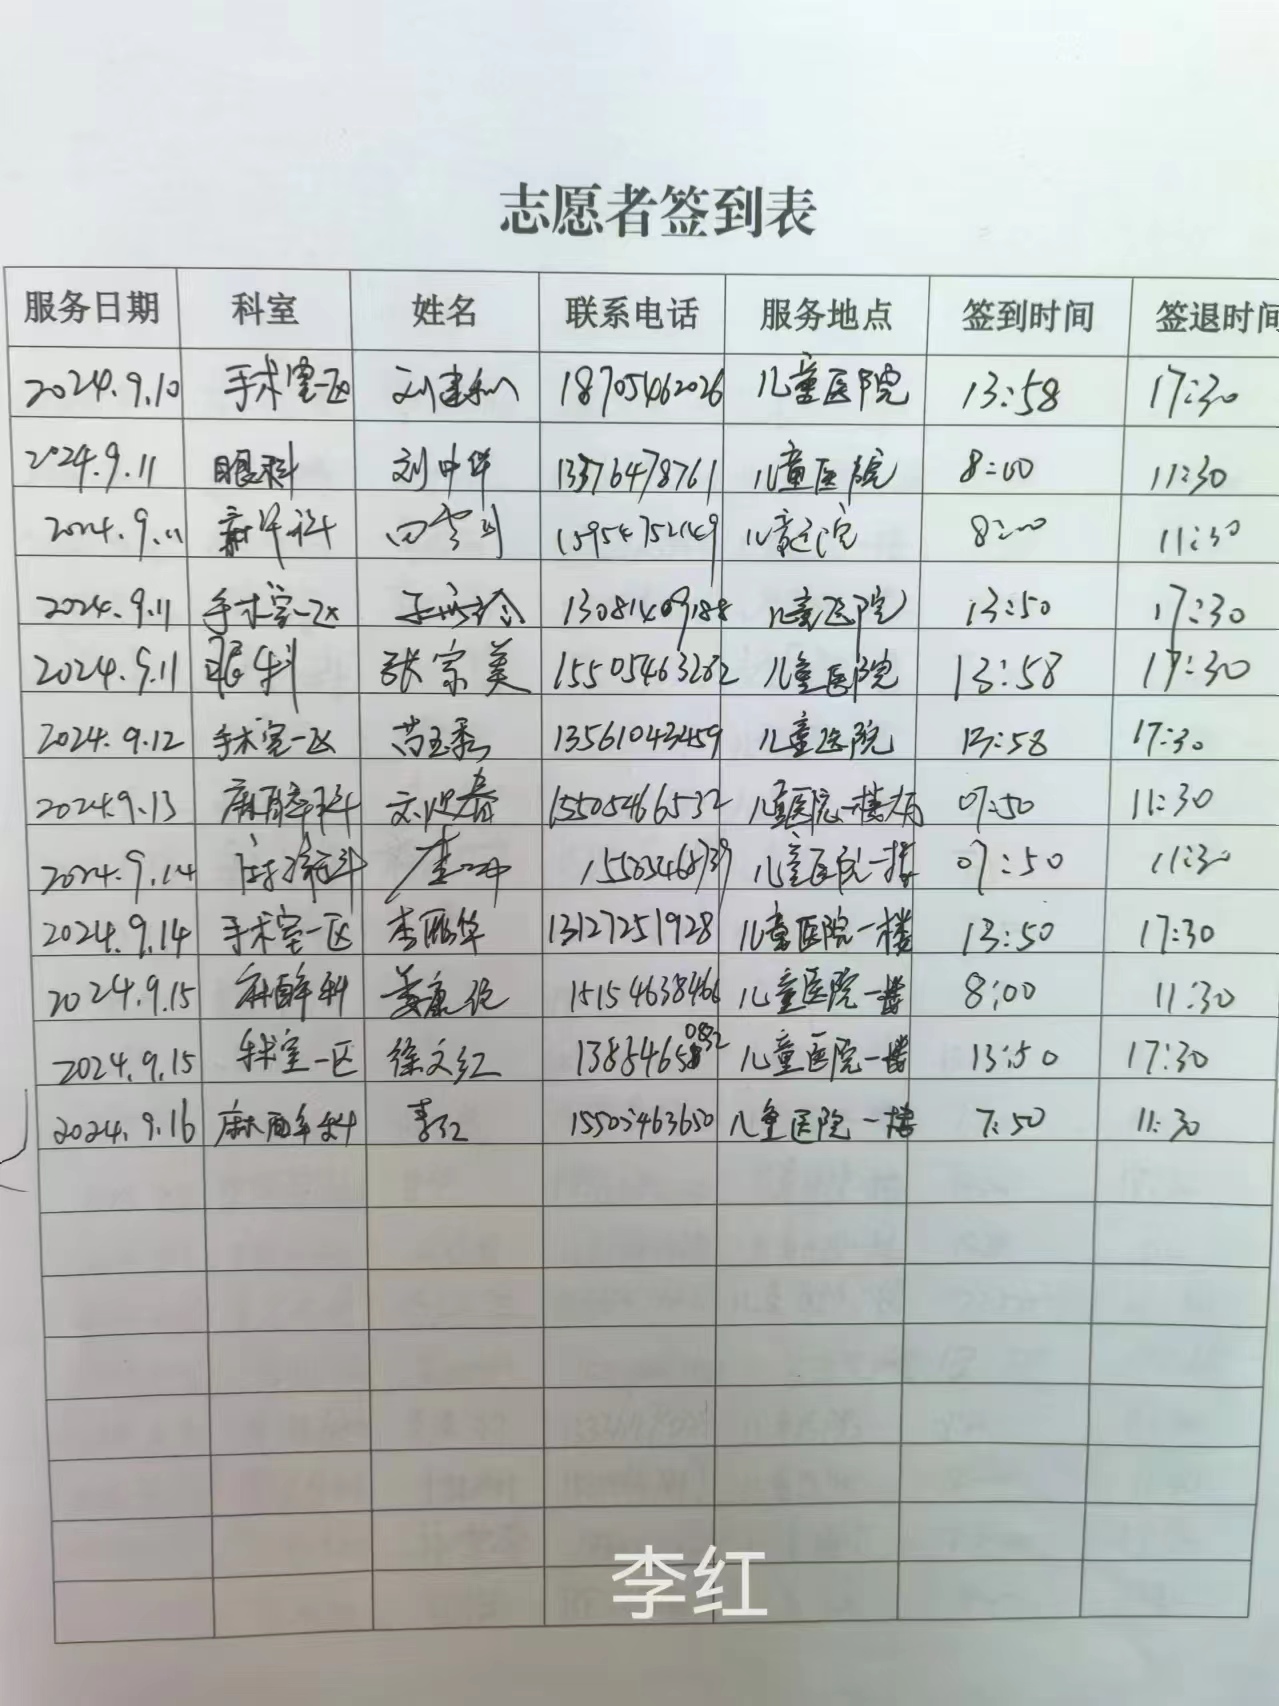 志愿者签到表
服务日期 科室 姓名 联系电话 服务地点 签到时间 签退时间
2024.9.10 手术室一区 刘建和 18705462026 儿童医院 13:58 17:30
2024.9.11 眼科 刘中华 13376478761 儿童医院 8:00 11:30
2024.9.11 15954752149 儿童医院 8:00 11:30
2024.9.11 手术室一区 13081409188 儿童医院 13:50 17:30
2024.9.11 眼科 张宗美 15505463282 儿童医院 13:58 17:30
2024.9.12 手术室一区 苗玉秀 13561043459 儿童医院 13:58 17:30
2024.9.13 麻醉科 15505466532 儿童医院一楼大厅 07:50 11:30
2024.9.14 儿童医院一楼 07:50 11:30
2024.9.14 手术室一区 李丽华 13127251928 儿童医院一楼 13:50 17:30
2024.9.15 麻醉科 姜康纪 15154638466 儿童医院一楼 8:00 11:30
2024.9.15 手术室一区 徐文红 儿童医院一楼 13:50 17:30
2024.9.16 麻醉科 李红 15505463650 儿童医院一楼 7:50 11:30
李红